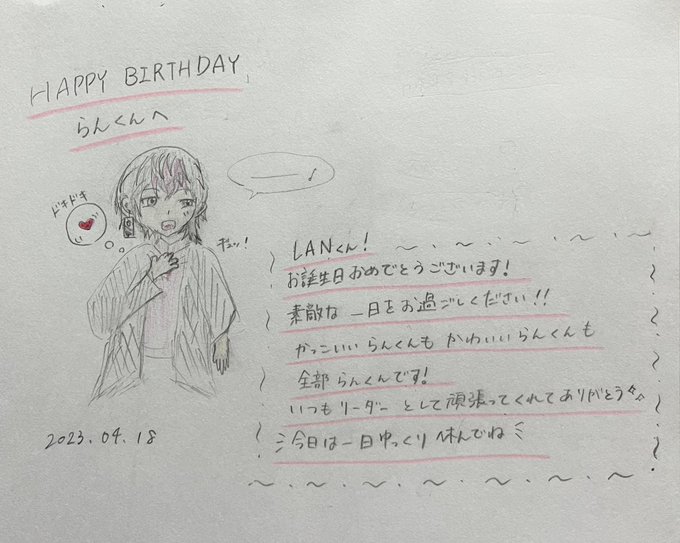 HAPPY BIRTHDAY
らんくんへ
ドキドキ
♪
ギュッ!
LANくん!
お誕生日おめでとうございます!
素敵な一日をお過ごしください!!
かっこいいらんくんも かわいいらんくんも
全部らんくんです!
いつもリーダーとして頑張ってくれてありがとう
今日は一日ゆっくり休んでね
2023.04.18